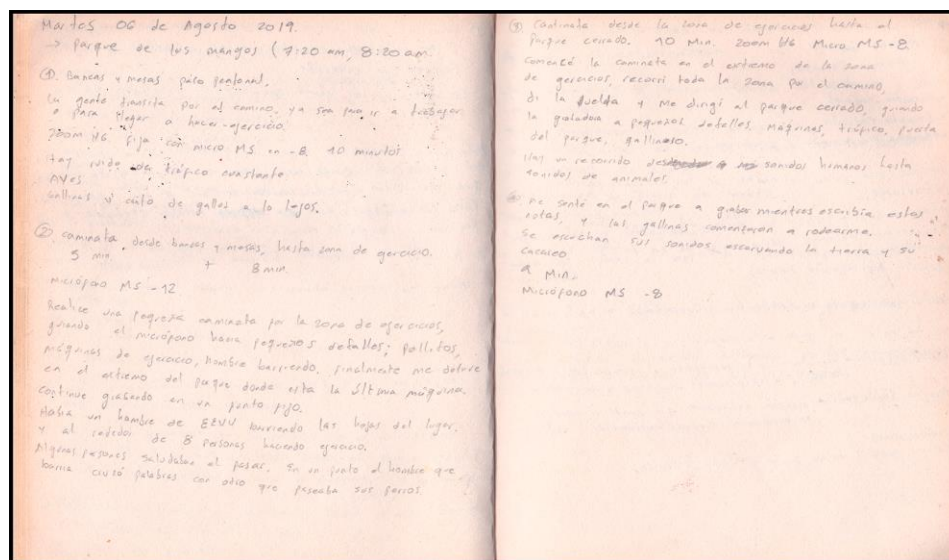 Martes 06 de Agosto 2019.
→ Parque de los mangos (7:20 am, 8:20 am.
①. Bancas y mesas paso peatonal.
La gente transita por el camino, ya sea para ir a trabajar
o para llegar a hacer ejercicio.
Zoom H6 fija con micro MS en -8. 10 minutos
Hay ruido de tráfico constante
Aves
Gallinas y canto de gallos a lo lejos.
② caminata desde bancas y mesas, hasta zona de ejercicio.
5 min. + 8 min.
Micrófono MS -12
Realice una pequeña caminata por la zona de ejercicios,
guiando el micrófono hacia pequeños detalles; pollitos,
máquinas de ejercicio, hombre barriendo. Finalmente me detuve
en el extremo del parque donde esta la última máquina.
Continue grabando en un punto fijo.
Habia un hombre de barriendo las hojas del lugar.
y al rededor de 8 personas haciendo ejercicio.
Algunas personas saludaban al pasar. En un punto el hombre que
barria cruzó palabras con otro que paseaba sus perros.
③ Caminata desde la zona de ejercicios hasta el
Parque cerrado. 10 Min. Zoom H6 Micro MS -8.
Comencé la caminata en el extremo de la zona
de ejercicios, recorri toda la zona por el camino,
di la vuelta y me dirigi al parque cerrado, guiando
la grabadora a pequeños detalles, máquinas, tráfico, puerta
del parque, gallinero.
Hay un recorrido sonidos humanos hasta
sonidos de animales.
me senté en el parque a grabar mientras escribía estas
notas, y las gallinas comenzaron a rodearme.
Se escuchan sus sonidos escarvando la tierra y su
cacareo
9 Min.
Micrófono MS -8